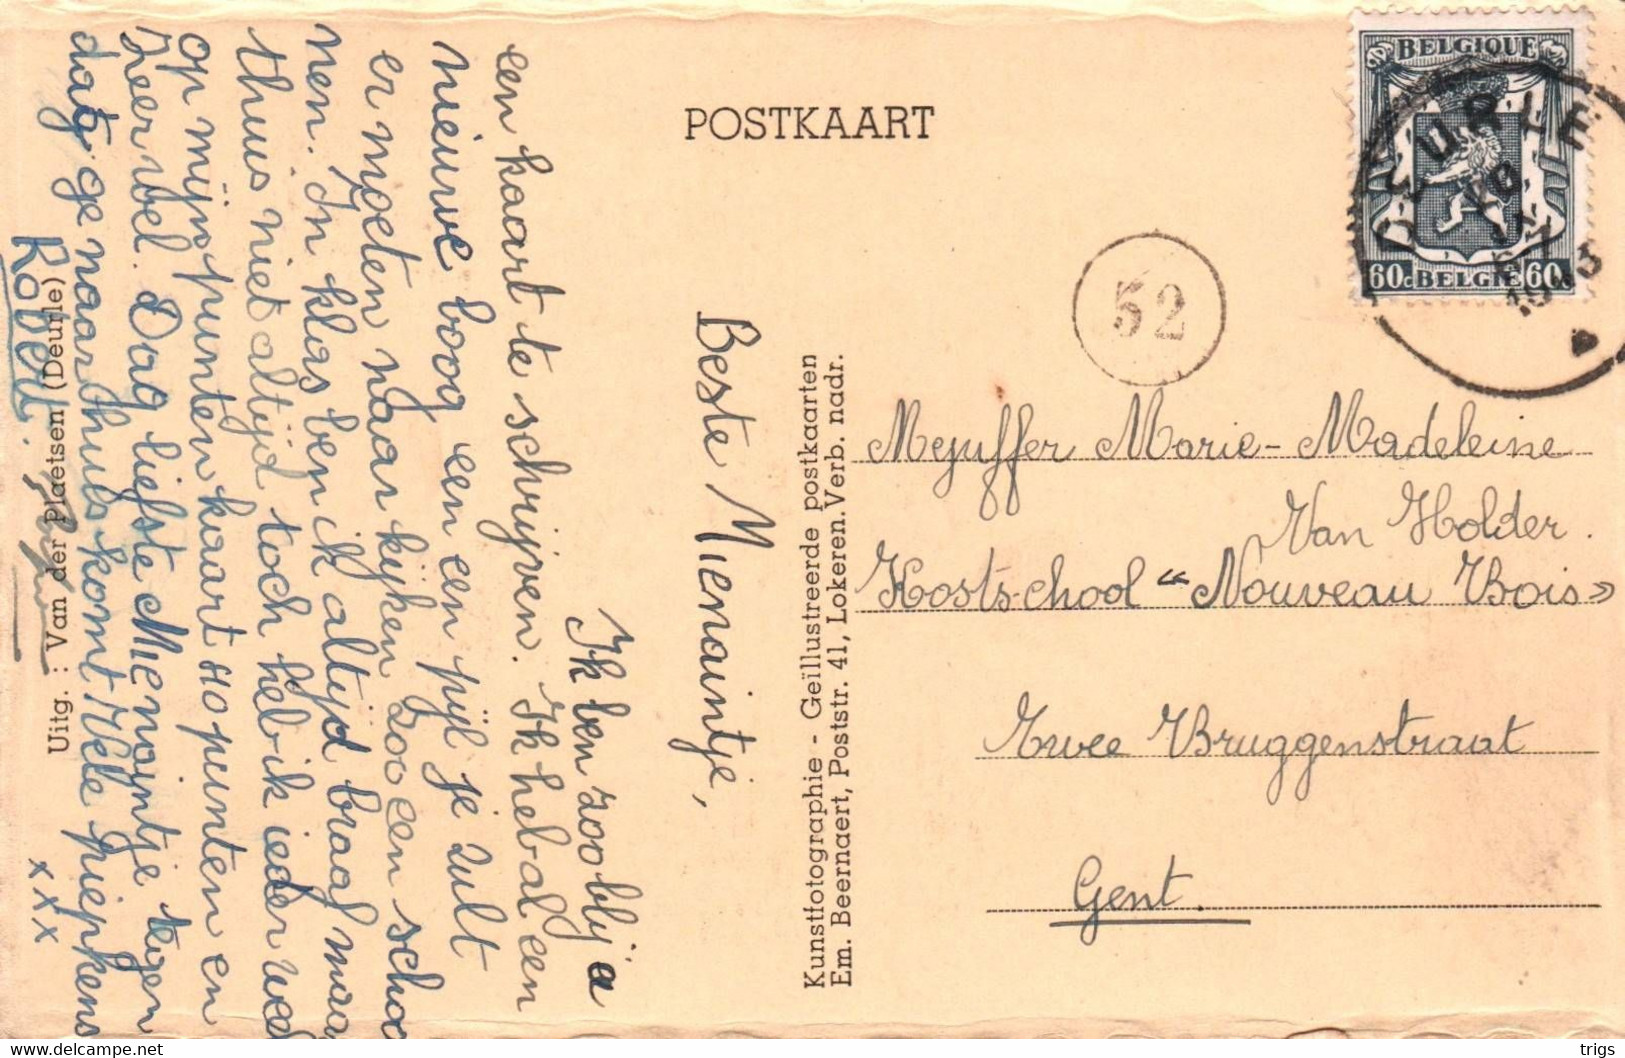 POSTKAART
BELGIQUE
60c BELGIE 60
DEURLE
52
Beste Mienaintje,
Ik ben zoo blij a
een kaart te schrijven. Ik heb al een
nieuwe boog een een pijl je zult
er moeten naar kijken zoo een schoo
nen. In klas ben ik altijd braaf maar
thuis niet altijd toch heb ik ieder week
op mijn puntenkaart 10 punten en
zeer wel. Dag liefste Mienaintje tegen
dat ge naar thuis komt vele piepkens
Robert.
x x x
Uitg. : Van der Plaetsen (Deurle)
Kunstfotographie - Geïllustreerde postkaarten
Em. Beernaert, Poststr. 41, Lokeren. Verb. nadr.
Mejuffer Marie-Madeleine
Van Holder.
Kostschool "Nouveau Bois»
Twee Bruggenstraat
Gent.
trigs